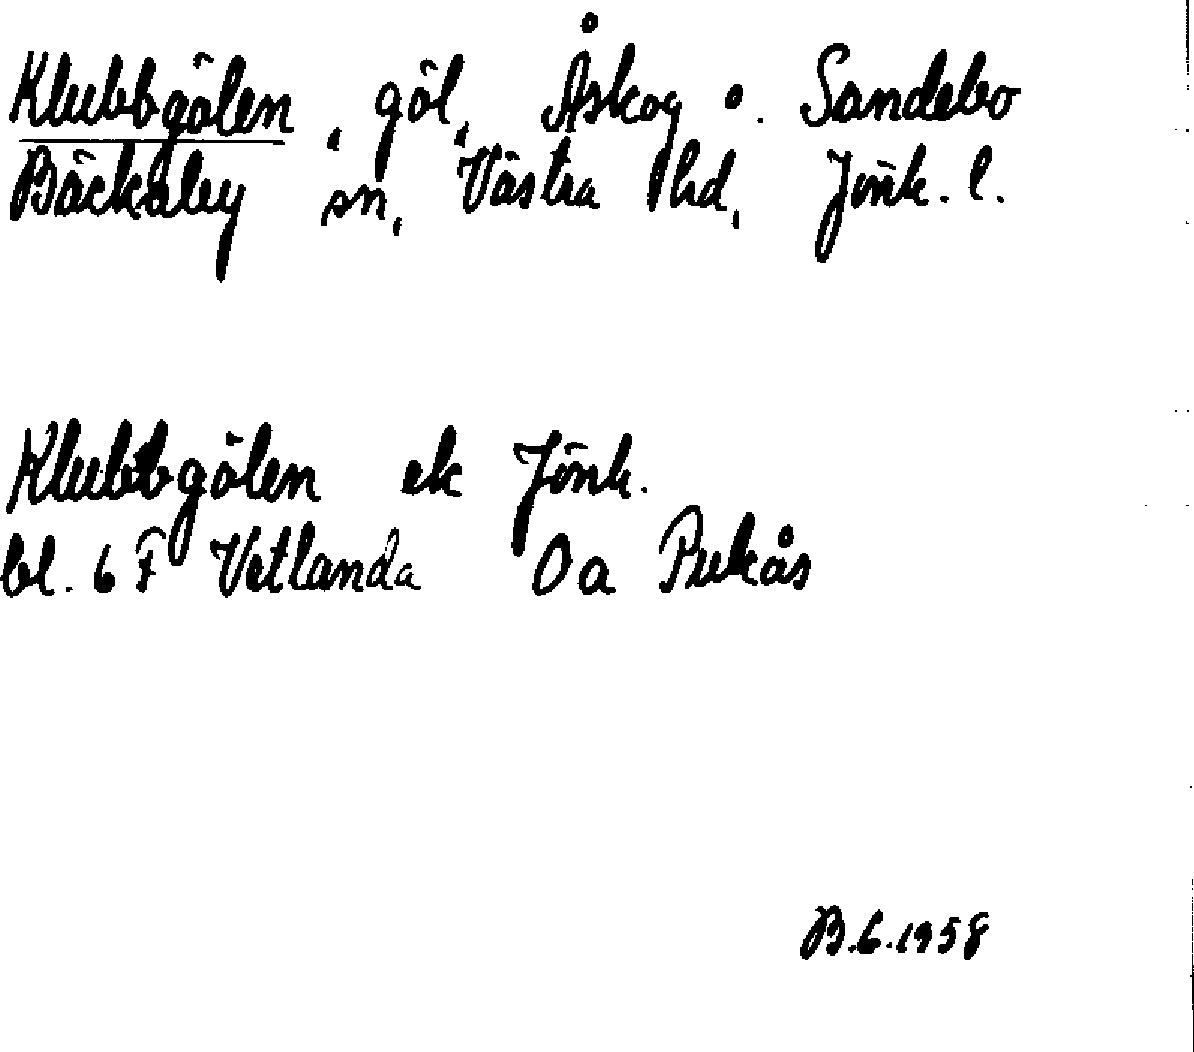 Klubbgölen, göl, Åskog o. Sandebo
Bäckaby sn, Västra hd, Jönk. l.
Klubbgölen ek Jönk.
bl. 6 F Vetlanda Oa Pukås
B.G.1958